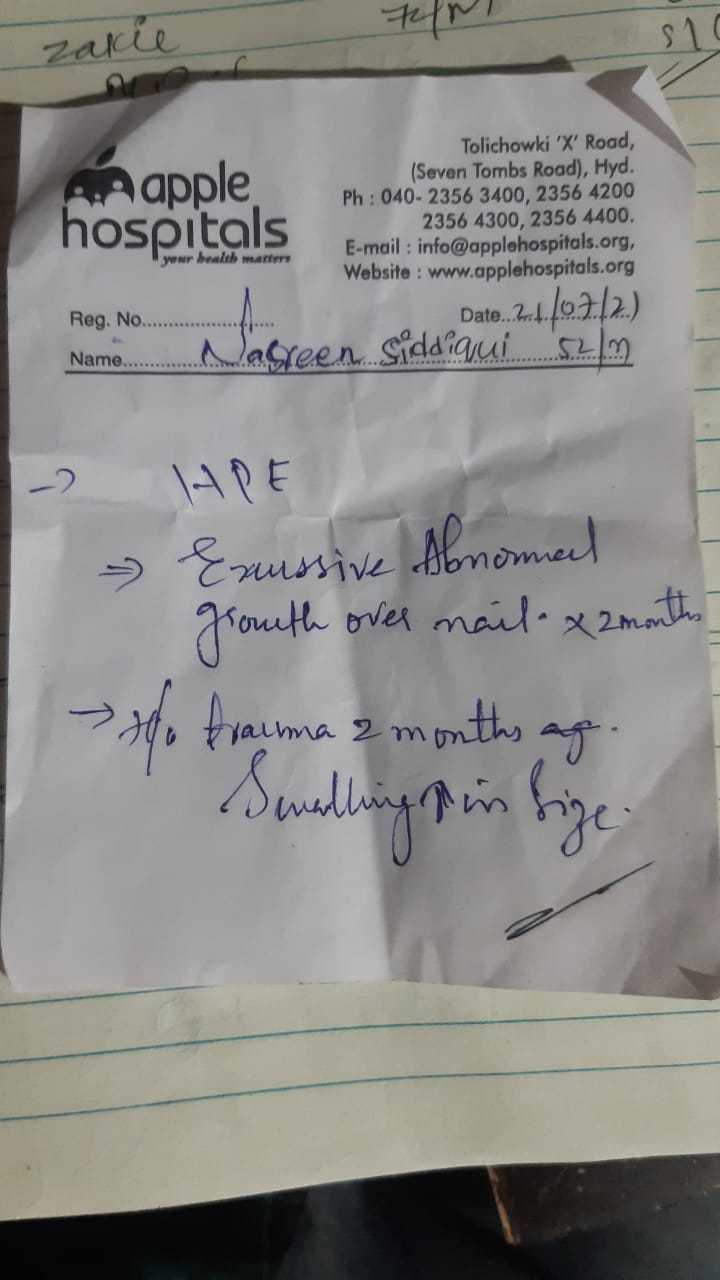 zakie
72/M
apple
hospitals
your health matters
Tolichowki 'X' Road,
(Seven Tombs Road), Hyd.
Ph : 040- 2356 3400, 2356 4200
2356 4300, 2356 4400.
E-mail : info@applehospitals.org,
Website : www.applehospitals.org
Reg. No.....................
Date..21/07/21
Name............Nasreen Siddiqui 52/M
→ HPE
⇒ Excessive Abnormal
growth over nail. x 2 months
→ H/o trauma 2 months ag.
Swelling ↑ in size.